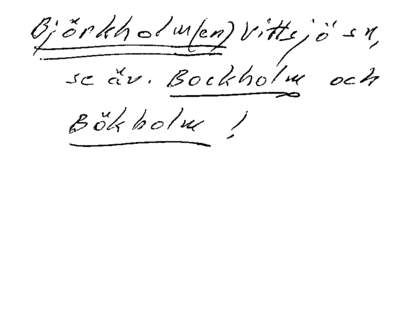 Björkholm(en) Vittsjö sn,
se äv. Bockholm och
Bökholm !